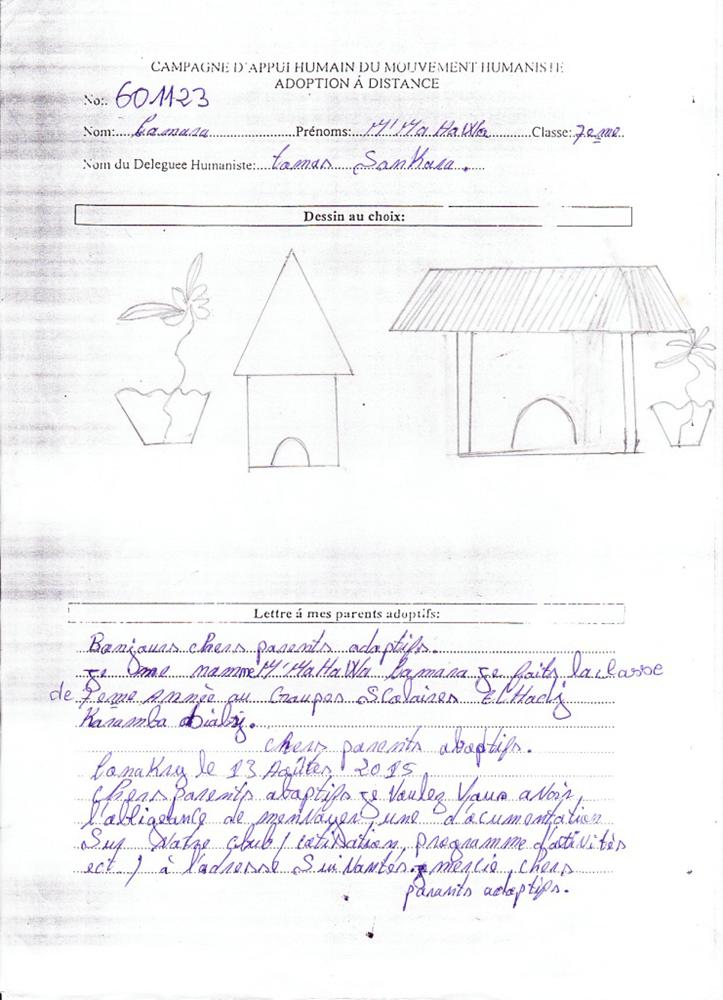 CAMPAGNE D'APPUI HUMAIN DU MOUVEMENT HUMANISTE
ADOPTION Á DISTANCE
No:. 601123
Nom: Camara Prénoms: M'Mah Hawa Classe: 7eme
Nom du Deleguee Humaniste: Camas Sankara.
Dessin au choix:
Lettre á mes parents adoptifs:
Banjaurs chers parents adaptifs.
je me namme M'Mah Hawa Camara je faits la classe
de 7eme année au Graupes Scalaires El Hadj
Karamba diaby.
chers parents abaptifs.
Canakry le 13 Aaûtes 2015
Chers parents abaptifs je Vaulez Vaus avair
l'abligeance de m'envayer une d'acumentatian
Sur Vatre club ( catisatian, pragramme d'activités
ect. ) à l'adresse Suivantes. mercie chers
parants adaptifs.